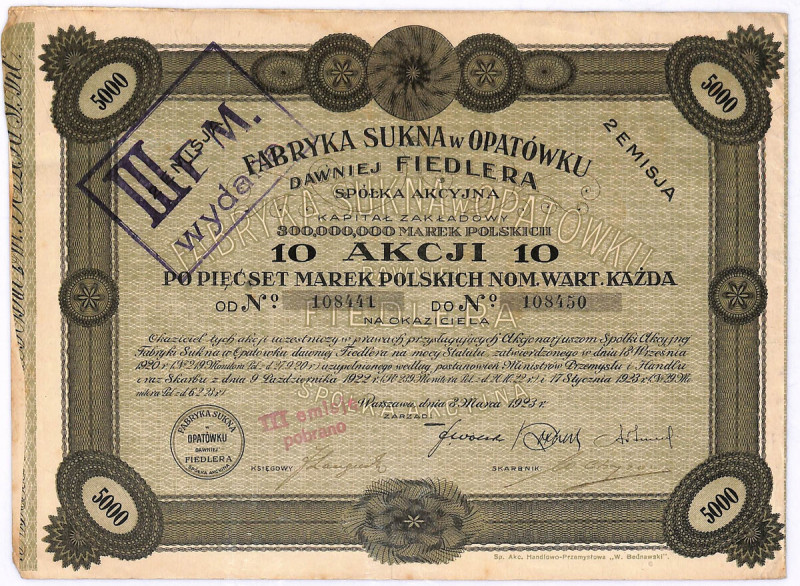 5000
5000
2 EMISJA
EMISJA
III EM.
wydano
FABRYKA SUKNA w OPATÓWKU
DAWNIEJ FIEDLERA
SPÓŁKA AKCYJNA
KAPITAŁ ZAKŁADOWY
300,000,000 MAREK POLSKICH
10 AKCJI 10
PO PIĘĆSET MAREK POLSKICH NOM. WART. KAŻDA
OD No. 108441 DO No. 108450
NA OKAZICIELA
FABRYKA SUKNA w OPATÓWKU
DAWNIEJ
FIEDLERA
SPÓŁKA AKCYJNA
Okaziciel tych akcji uczestniczy w prawach przysługujących Akcjonarjuszom Spółki Akcyjnej
Fabryki Sukna w Opatówku dawniej Fiedlera na mocy Statutu, zatwierdzonego w dniu 18 Września
1920 r. (№ 219 Monitora Pol. z d. 27.9.20 r.) uzupełnionego według postanowień Ministrów Przemysłu i Handlu
oraz Skarbu z dnia 9 Października 1922 r. i 17 Stycznia 1923 r. (№ 29 Mo-
nitora Pol. z d. 6.2.23 r.)
Warszawa, dnia 8 Marca 1923 r.
ZARZĄD:
III emisję
pobrano
FABRYKA SUKNA
w
OPATÓWKU
DAWNIEJ
FIEDLERA
SPÓŁKA AKCYJNA
KSIĘGOWY
SKARBNIK
5000
5000
Sp. Akc. Handlowo-Przemysłowa „W. Bednawski".